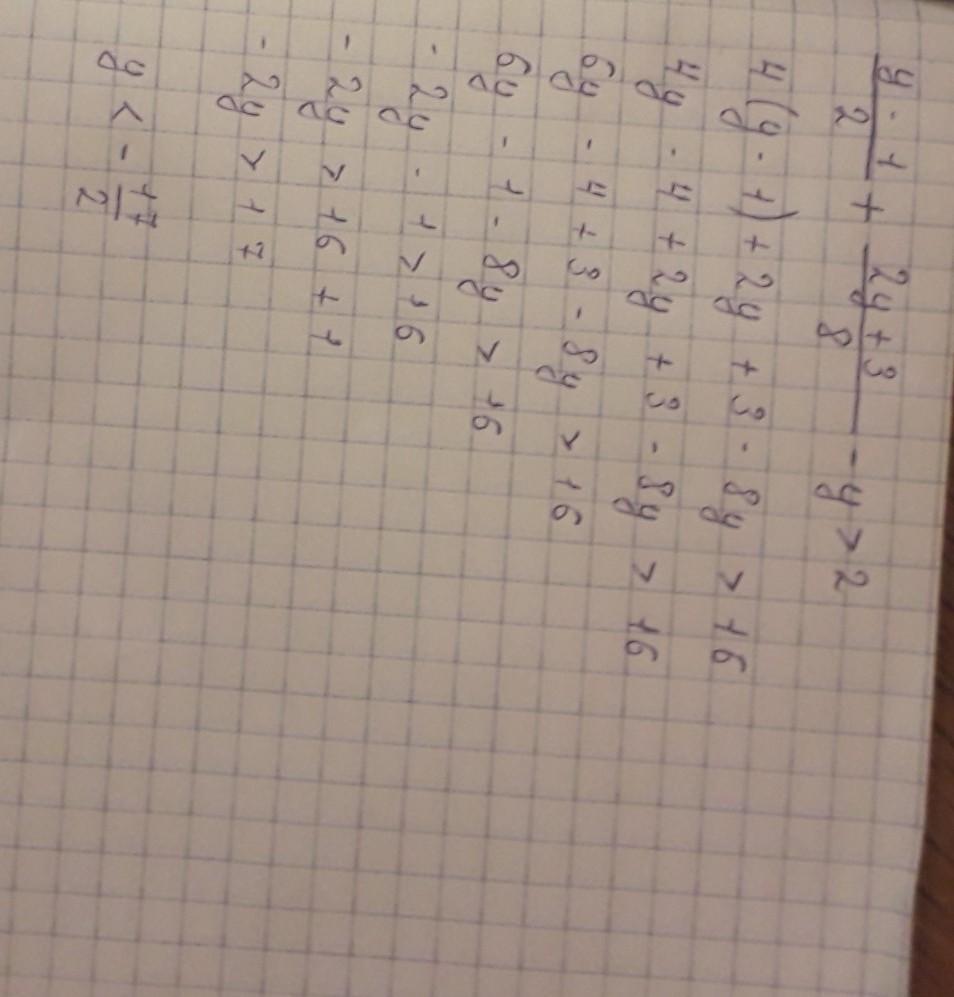 y-1/2 + 2y+3/8 - y > 2
4(y-1) + 2y + 3 - 8y > 16
4y - 4 + 2y + 3 - 8y > 16
6y - 4 + 3 - 8y > 16
6y - 1 - 8y > 16
-2y - 1 > 16
-2y > 16 + 1
-2y > 17
y < - 17/2